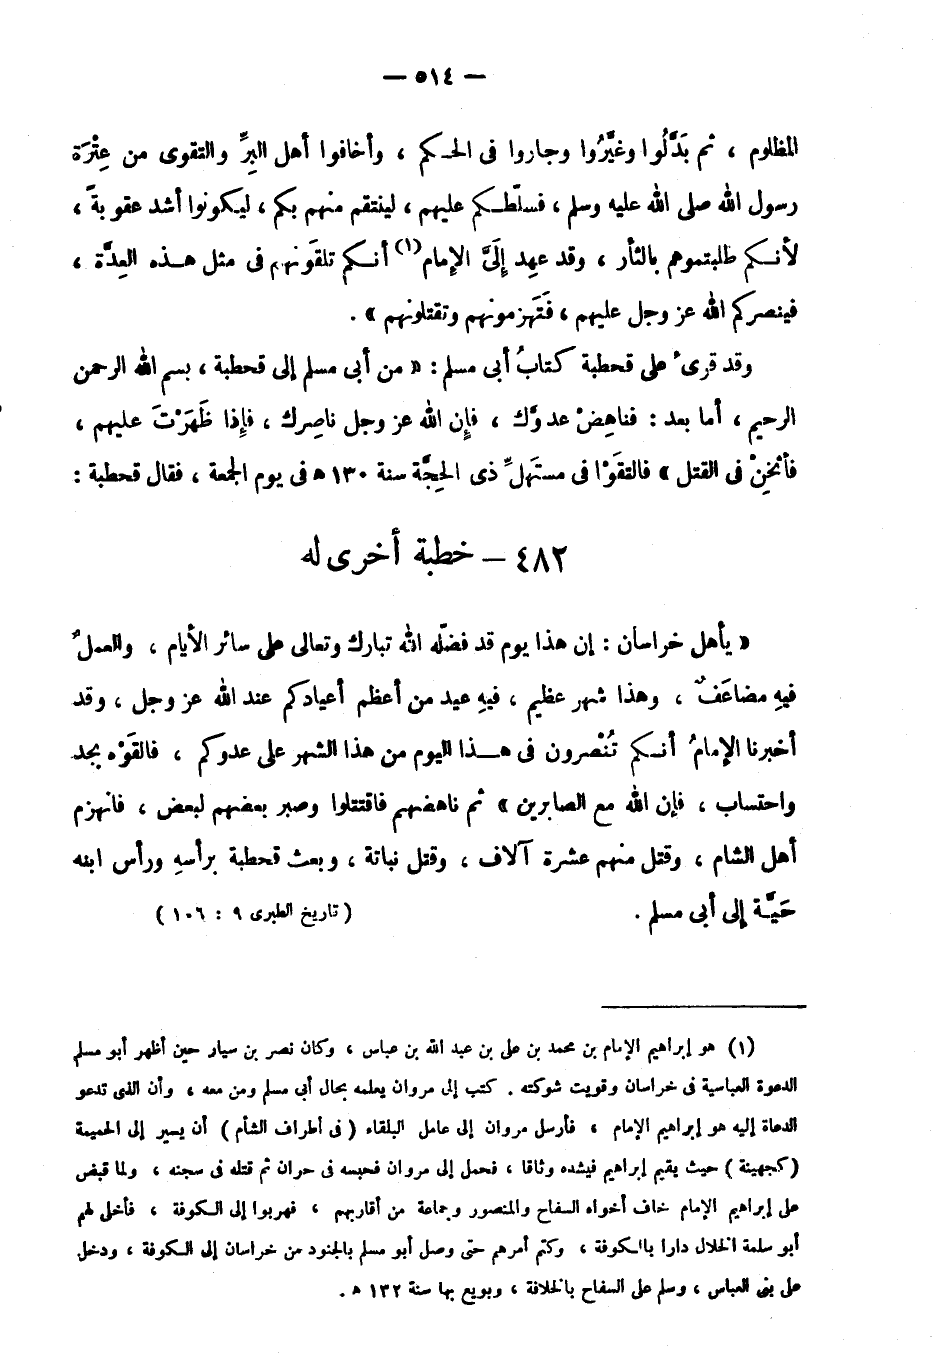 — ٥١٤ —
المظلوم ، ثم بَدَّلُوا وغيَّرُوا وجاروا فى الحكم ، وأخافوا أهل البِرِّ والتقوى من عِتْرَة
رسول الله صلى الله عليه وسلم ، فسلّطكم عليهم ، لينتقم منهم بكم ، ليكونوا أشد عقوبةً ،
لأنكم طلبتموهم بالثأر ، وقد عهد إِلَىَّ الإمام (١) أنكم تلقَونهم فى مثل هذه العِدَّة ،
فينصركم الله عز وجل عليهم ، فَتَهزمونهم وتقتلونهم » .
وقد قرىء على قحطبة كتابُ أبى مسلم : « من أبى مسلم إلى قحطبة ، بسم الله الرحمن
الرحيم ، أما بعد : فناهِضْ عدوَّك ، فإن الله عز وجل ناصِرك ، فإذا ظَهَرْتَ عليهم ،
فأثخِنْ فى القتل » فالتقَوْا فى مستهَلِّ ذى الحِجَّة سنة ١٣٠ ه‍ فى يوم الجمعة ، فقال قحطبة :
٤٨٢ — خطبة أخرى له
« يأهل خراسان : إن هذا يوم قد فضّله الله تبارك وتعالى على سائر الأيام ، والعملُ
فيهِ مضاعَفٌ ، وهذا شهر عظيم ، فيه عيد من أعظم أعيادكم عند الله عز وجل ، وقد
أخبرنا الإمامُ أنكم تُنْصرون فى هذا اليوم من هذا الشهر على عدوكم ، فالقَوْه بجد
واحتساب ، فإن الله مع الصابرين » ثم ناهضهم فاقتتلوا وصبر بعضهم لبعض ، فانهزم
أهل الشام ، وقتل منهم عشرة آلاف ، وقتل نباتة ، وبعث قحطبة برأسهِ ورأس ابنه
حَيَّة إلى أبى مسلم . ( تاريخ الطبرى ٩ : ١٠٦ )
(١) هو إبراهيم الإمام بن محمد بن على بن عبد الله بن عباس ، وكان نصر بن سيار حين أظهر أبو مسلم
الدعوة العباسية فى خراسان وقويت شوكته . كتب إلى مروان يعلمه بحال أبى مسلم ومن معه ، وأن الذى تدعو
الدعاة إليه هو إبراهيم الإمام ، فأرسل مروان إلى عامل البلقاء ( فى أطراف الشأم ) أن يسير إلى الحميمة
( كجهينة ) حيث يقيم إبراهيم فيشده وثاقا ، فحمل إلى مروان فحبسه فى حران ثم قتله فى سجنه ، ولما قبض
على إبراهيم الإمام خاف أخواه السفاح والمنصور وجماعة من أقاربهم ، فهربوا إلى الكوفة ، فأخلى لهم
أبو سلمة الخلال دارا بالكوفة ، وكتم أمرهم حتى وصل أبو مسلم بالجنود من خراسان إلى الكوفة ، ودخل
على بنى العباس ، وسلم على السفاح بالخلافة ، وبويع بها سنة ١٣٢ ه‍ .